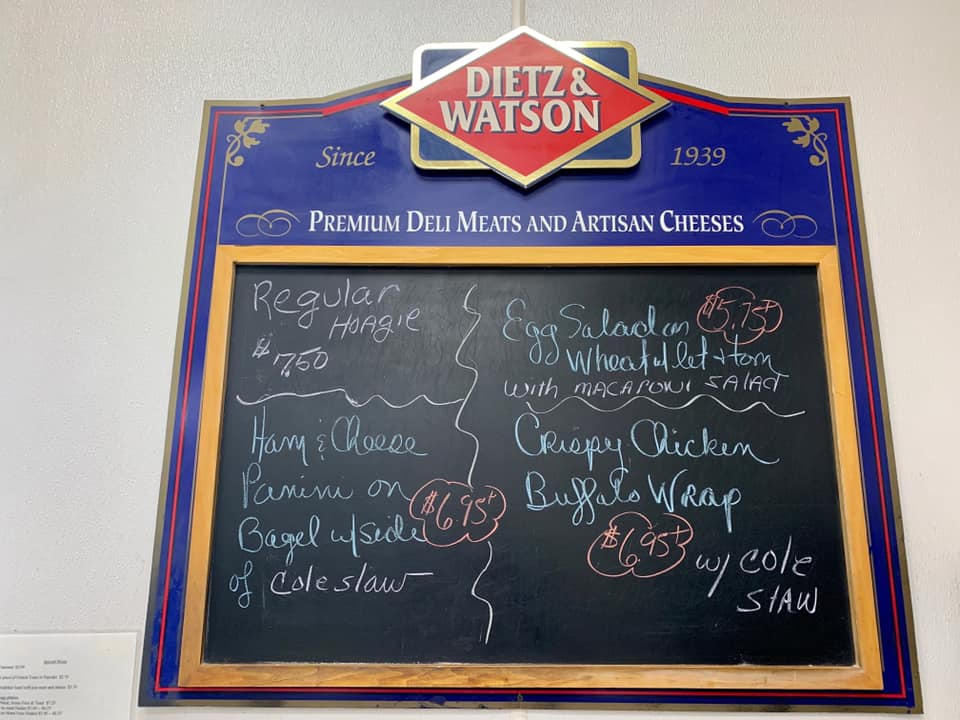 DIETZ &
WATSON
Since 1939
PREMIUM DELI MEATS AND ARTISAN CHEESES
Regular
HOAGIE
$7.50
Ham & Cheese
Panini on
Bagel w/side
of Coleslaw
$6.95+
Egg Salad on
Wheat w/let + tom
with MACARONI SALAD
$5.75+
Crispy Chicken
Buffalo Wrap
$6.95+
w/ COle
SlAW